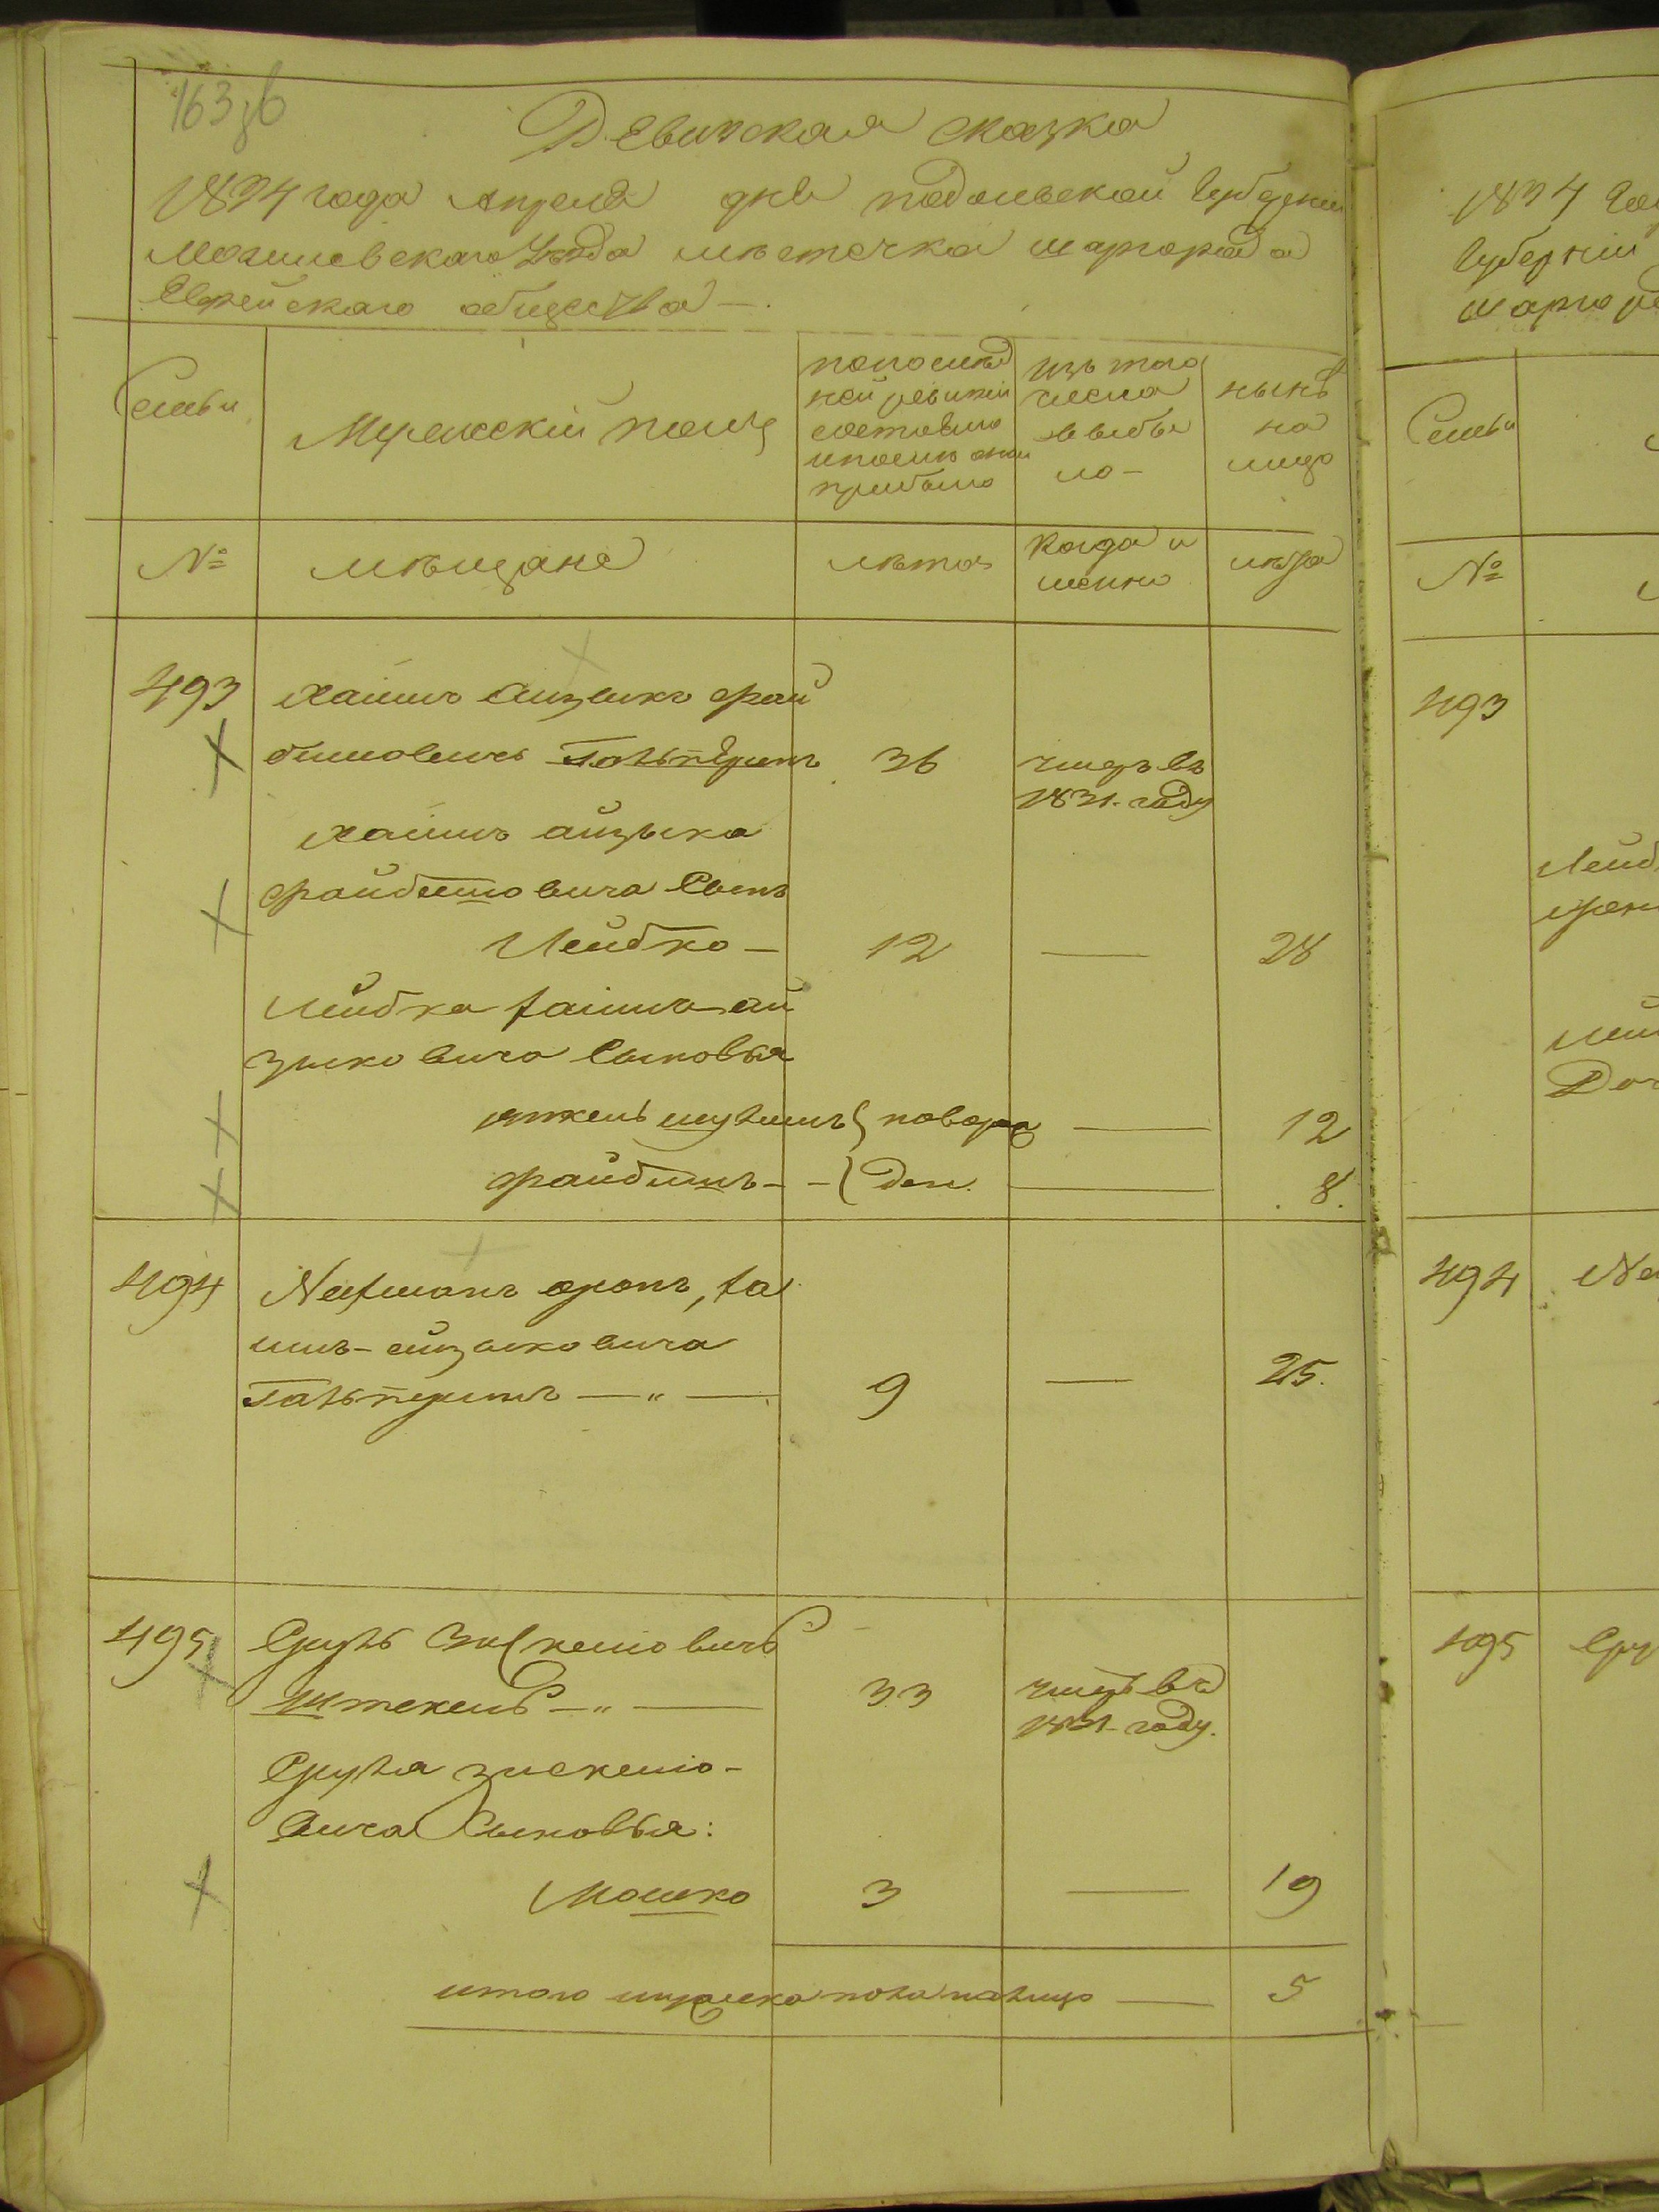 163зб
Ревизская сказка
1834 года апреля дня подольской Губернии
Могилевскаго Уезда местечка шаргорода
Еврейскаго общества —.
Семьи
Мужескій полъ
по послед
ней ревизіи
состояло
и после оной
прибыло
изъ того
числа
выбы
ло —
ныне
на
лицо
№
мещане
лета
Когда и
менно
лета
493
хаимъ айзыкъ фай
бишовичъ Гальперинъ
36
умеръ въ
1831. году
хаимъ айзыка
файбишовича Сынъ
Лейбко —
12
28
Лейбка хаимъ-ай
зыковича Сыновья
янкель шулимъ
новорож
12
файбишъ - -
ден.
8.
494
Нехманъ аронъ, ха
имъ-айзыковича
Гальперинъ — „ —
9
25.
495
Сруль Зискелiовичъ
Штекель — „ —
33
умеръ въ
1831. году.
Сруля зискелiо-
вича Сыновья:
Мошко
3
19
итого мужеска пола налицо
5
1834
Губерніи
Семьи
№
493
Лейб
Доч
494
Не
495
Сру